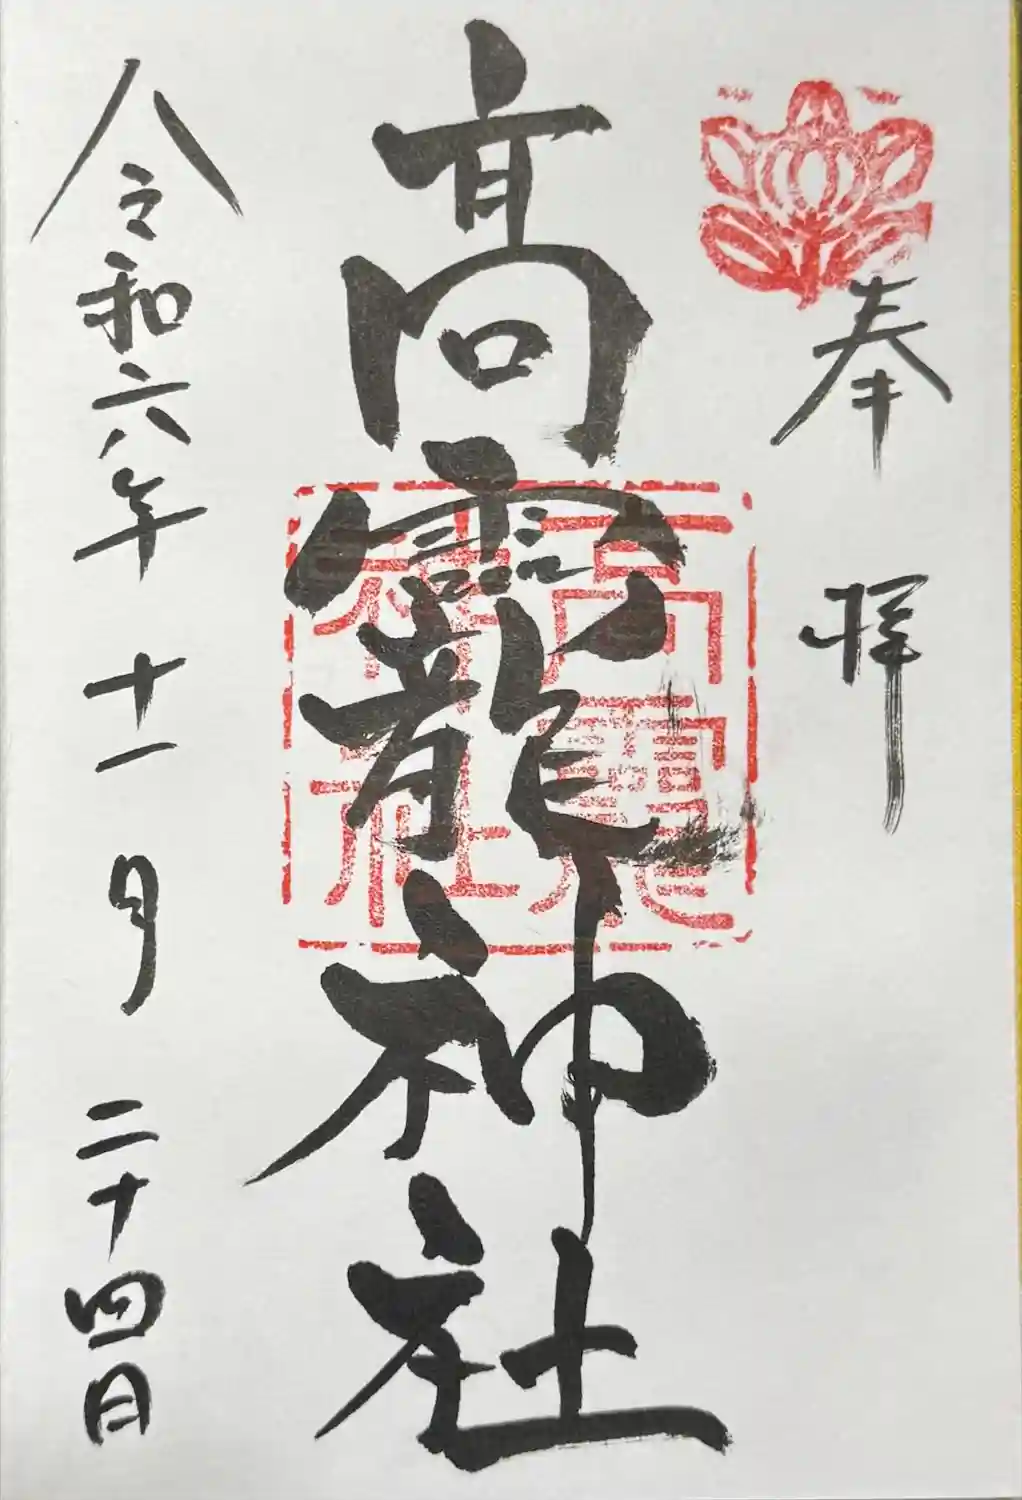 奉拝
高龗神社
高龗
神社
令和六年十一月二十四日